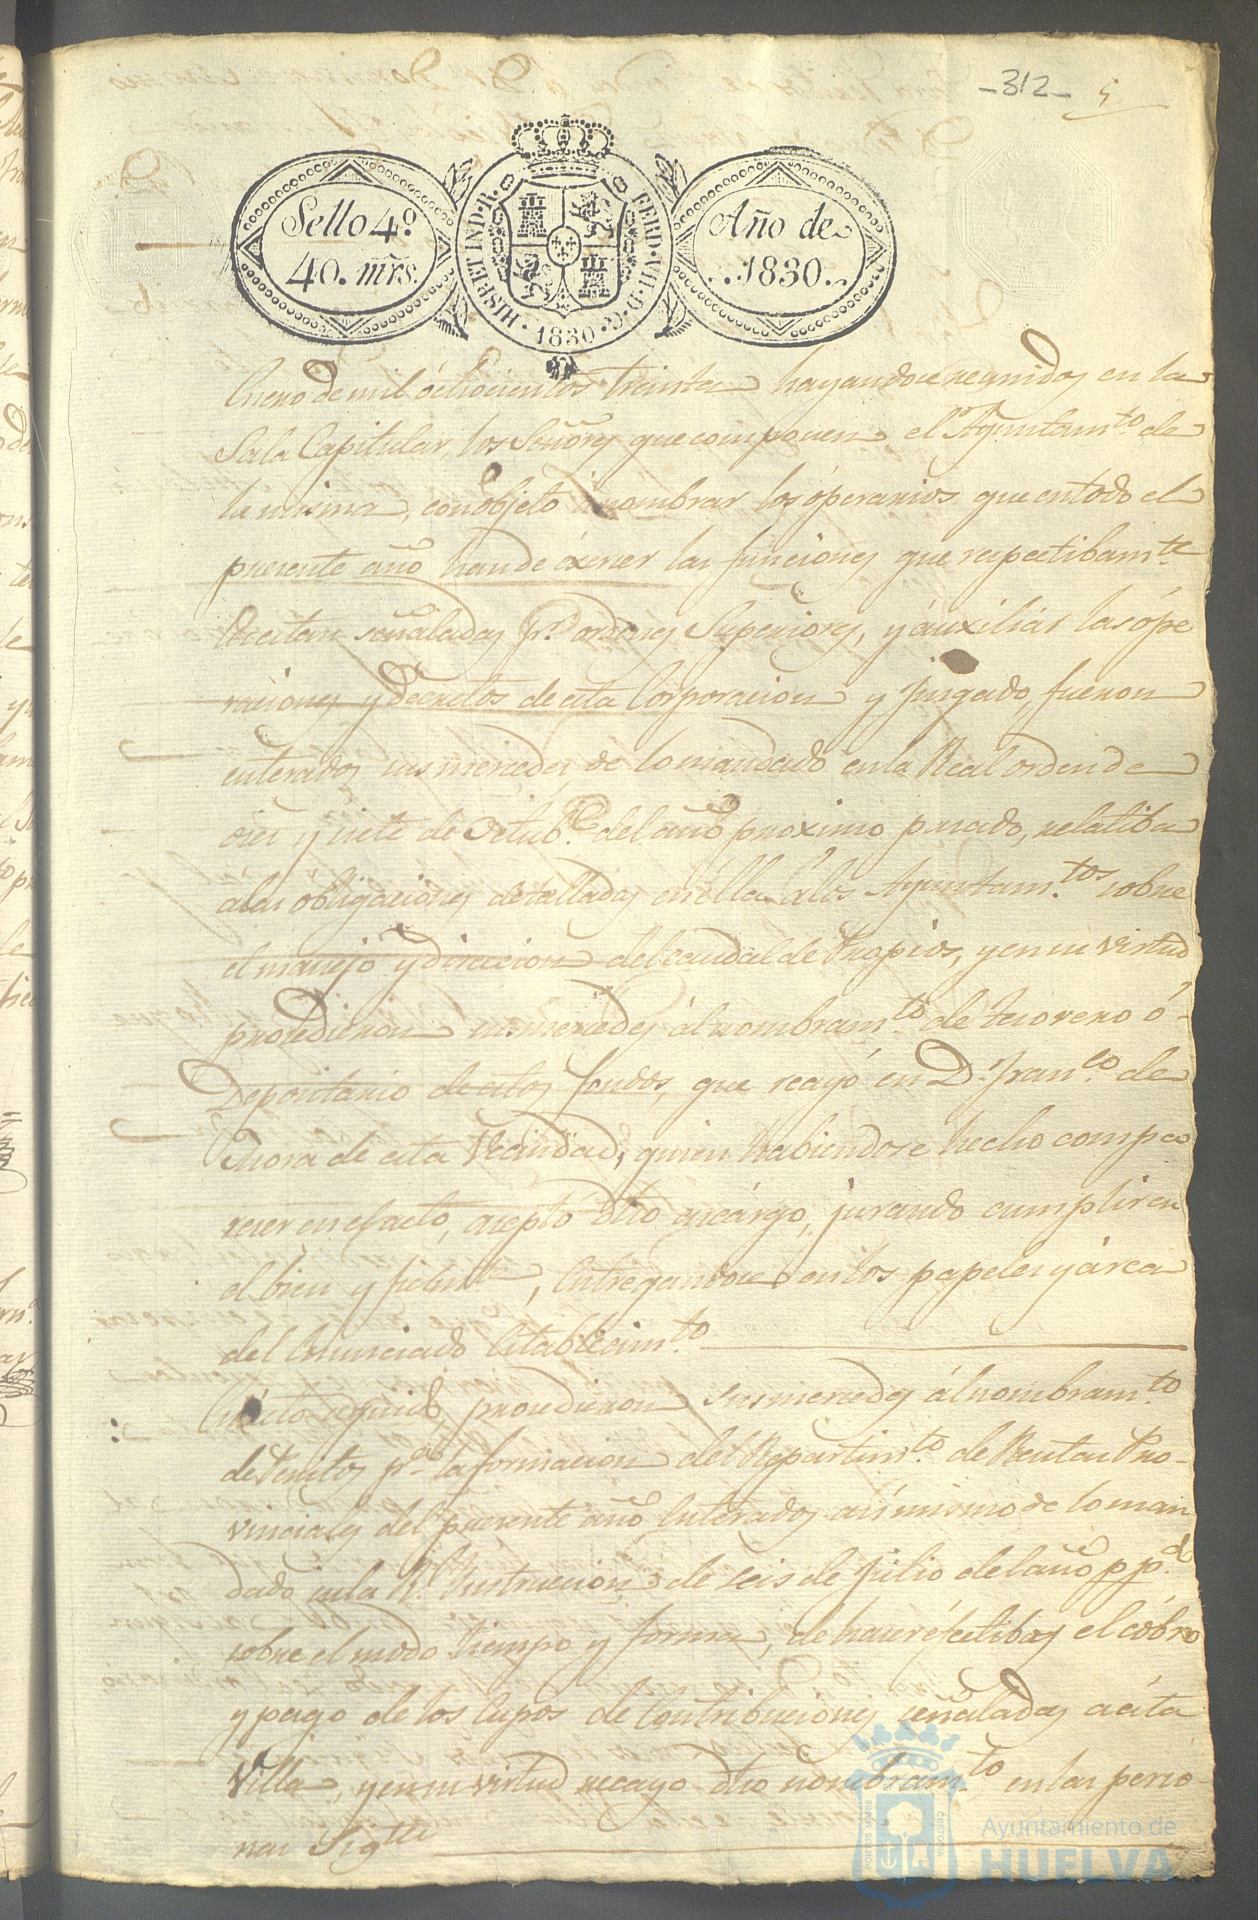 -312- 5
Sello 4º.
40. mrs.
HISP. ET IND. R.
FERD. VII. D. G.
1830
Año de
1830.
Enero de mil óchocientos treinta hayandose reunidos en la
Sala Capitular, los Señores que componen el Ayuntamto. de
la misma, con objeto á nombrar los óperarios que en todo el
presente año han de éxercer las funciones que respectibamte.
les estan señaladas pr. ordenes Superiores, y áuxiliár las ópe
raciones y Decretos de esta Corporacion y Juzgado, fueron
enterados sus mercedes de lo mandado en la Real orden de
dies y siete de Octube. del año proximo pasado, relatiba
a las obligaciones detalladas en ella á los Ayuntamtos. sobre
el manejo y direccion del caudal de Propios, y en su virtud
procedieron sus mercedes ál nombramto. de tesorero ó
Depositario de estos fondos, que recayó en D. Franco. de
Mora de esta Vecindad, quien habiendose hecho compa
recer en el acto, aceptó dho encárgo, jurando cumplir en
el bien y fielmte, Entregandose en los papeles y árca
del Enunciado Establecimto.
En ácto seguido procedieron Sus mercedes ál nombramto.
de Peritos pa. la formacion del Repartimto. de Rentas Pro-
vinciales del presente año Enterados asi mismo de lo man
dado en la Rl. Instruccion de seis de Julio del año ppdo.
sobre el modo tiempo y forma, de hacer éfectibas el cobro
y pago de los cupos de Contribuciones señaladas a esta
Villa, y en su virtud recayo dho nombramto. en las perso-
nas Sigtes
Ayuntamiento de
HUELVA